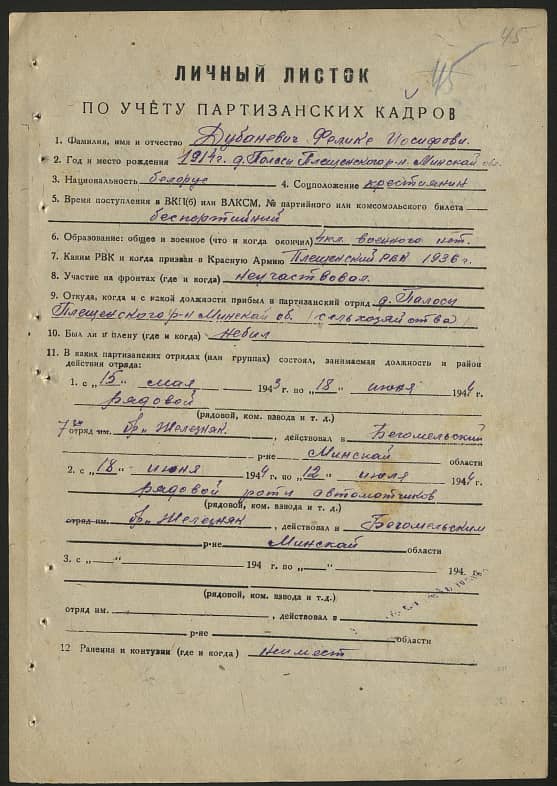 45
45
ЛИЧНЫЙ ЛИСТОК
ПО УЧЁТУ ПАРТИЗАНСКИХ КАДРОВ
1. Фамилия, имя и отчество Дубаневич Феликс Иосифови.
2. Год и место рождения 1914 г. д. Палосы Плещенского р-н. Минской об.
3. Национальность белорус 4. Соцположение крестиянин
5. Время поступления в ВКП(б) или ВЛКСМ, № партийного или комсомольского билета
беспортийный
6. Образование: общее и военное (что и когда окончил) 4 кл. военного нет.
7. Каким РВК и когда призван в Красную Армию Плещенский РВК 1936 г.
8. Участие на фронтах (где и когда) неучаствовал.
9. Откуда, когда и с какой должности прибыл в партизанский отряд д. Палосы
Плещенского р-н Минской об. (сельхозяйства)
10. Был ли в плену (где и когда) небил
11. В каких партизанских отрядах (или группах) состоял, занимаемая должность и район
действия отряда:
1. с „15" мая 1943 г. по „18" июня 1944 г.
рядовой
(рядовой, ком. взвода и т. д.)
7 отряд им. бр „Железняк. , действовал в Бегомельский
р-не Минской области
2. с „18" июня 1944 г. по „12" июля 1944 г.
рядовой роти автоматчиков
(рядовой, ком. взвода и т. д.)
отряд им. бр „Железняк , действовал в Бегомельским
р-не Минскай области
3. с „ " 194 г. по „ " 194 г.
(рядовой, ком. взвода и т.д.)
отряд им. , действовал в
р-не области
12 Ранения и контузии (где и когда) неимеет